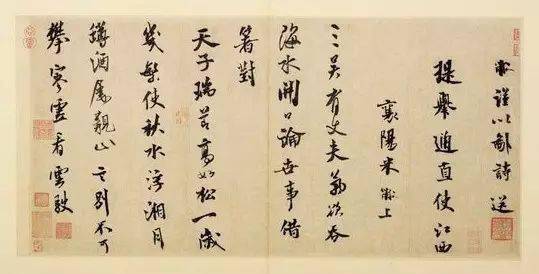 黻謹以鄙詩送
提舉通直使江西
襄陽米黻上
三吳有丈夫氣欲吞
海水開口論世事借
箸對
天子瑞節高如松一歲
幾繁使秋水浮湘月
罇酒屬覯止言別不可
攀寒霄看雲駛